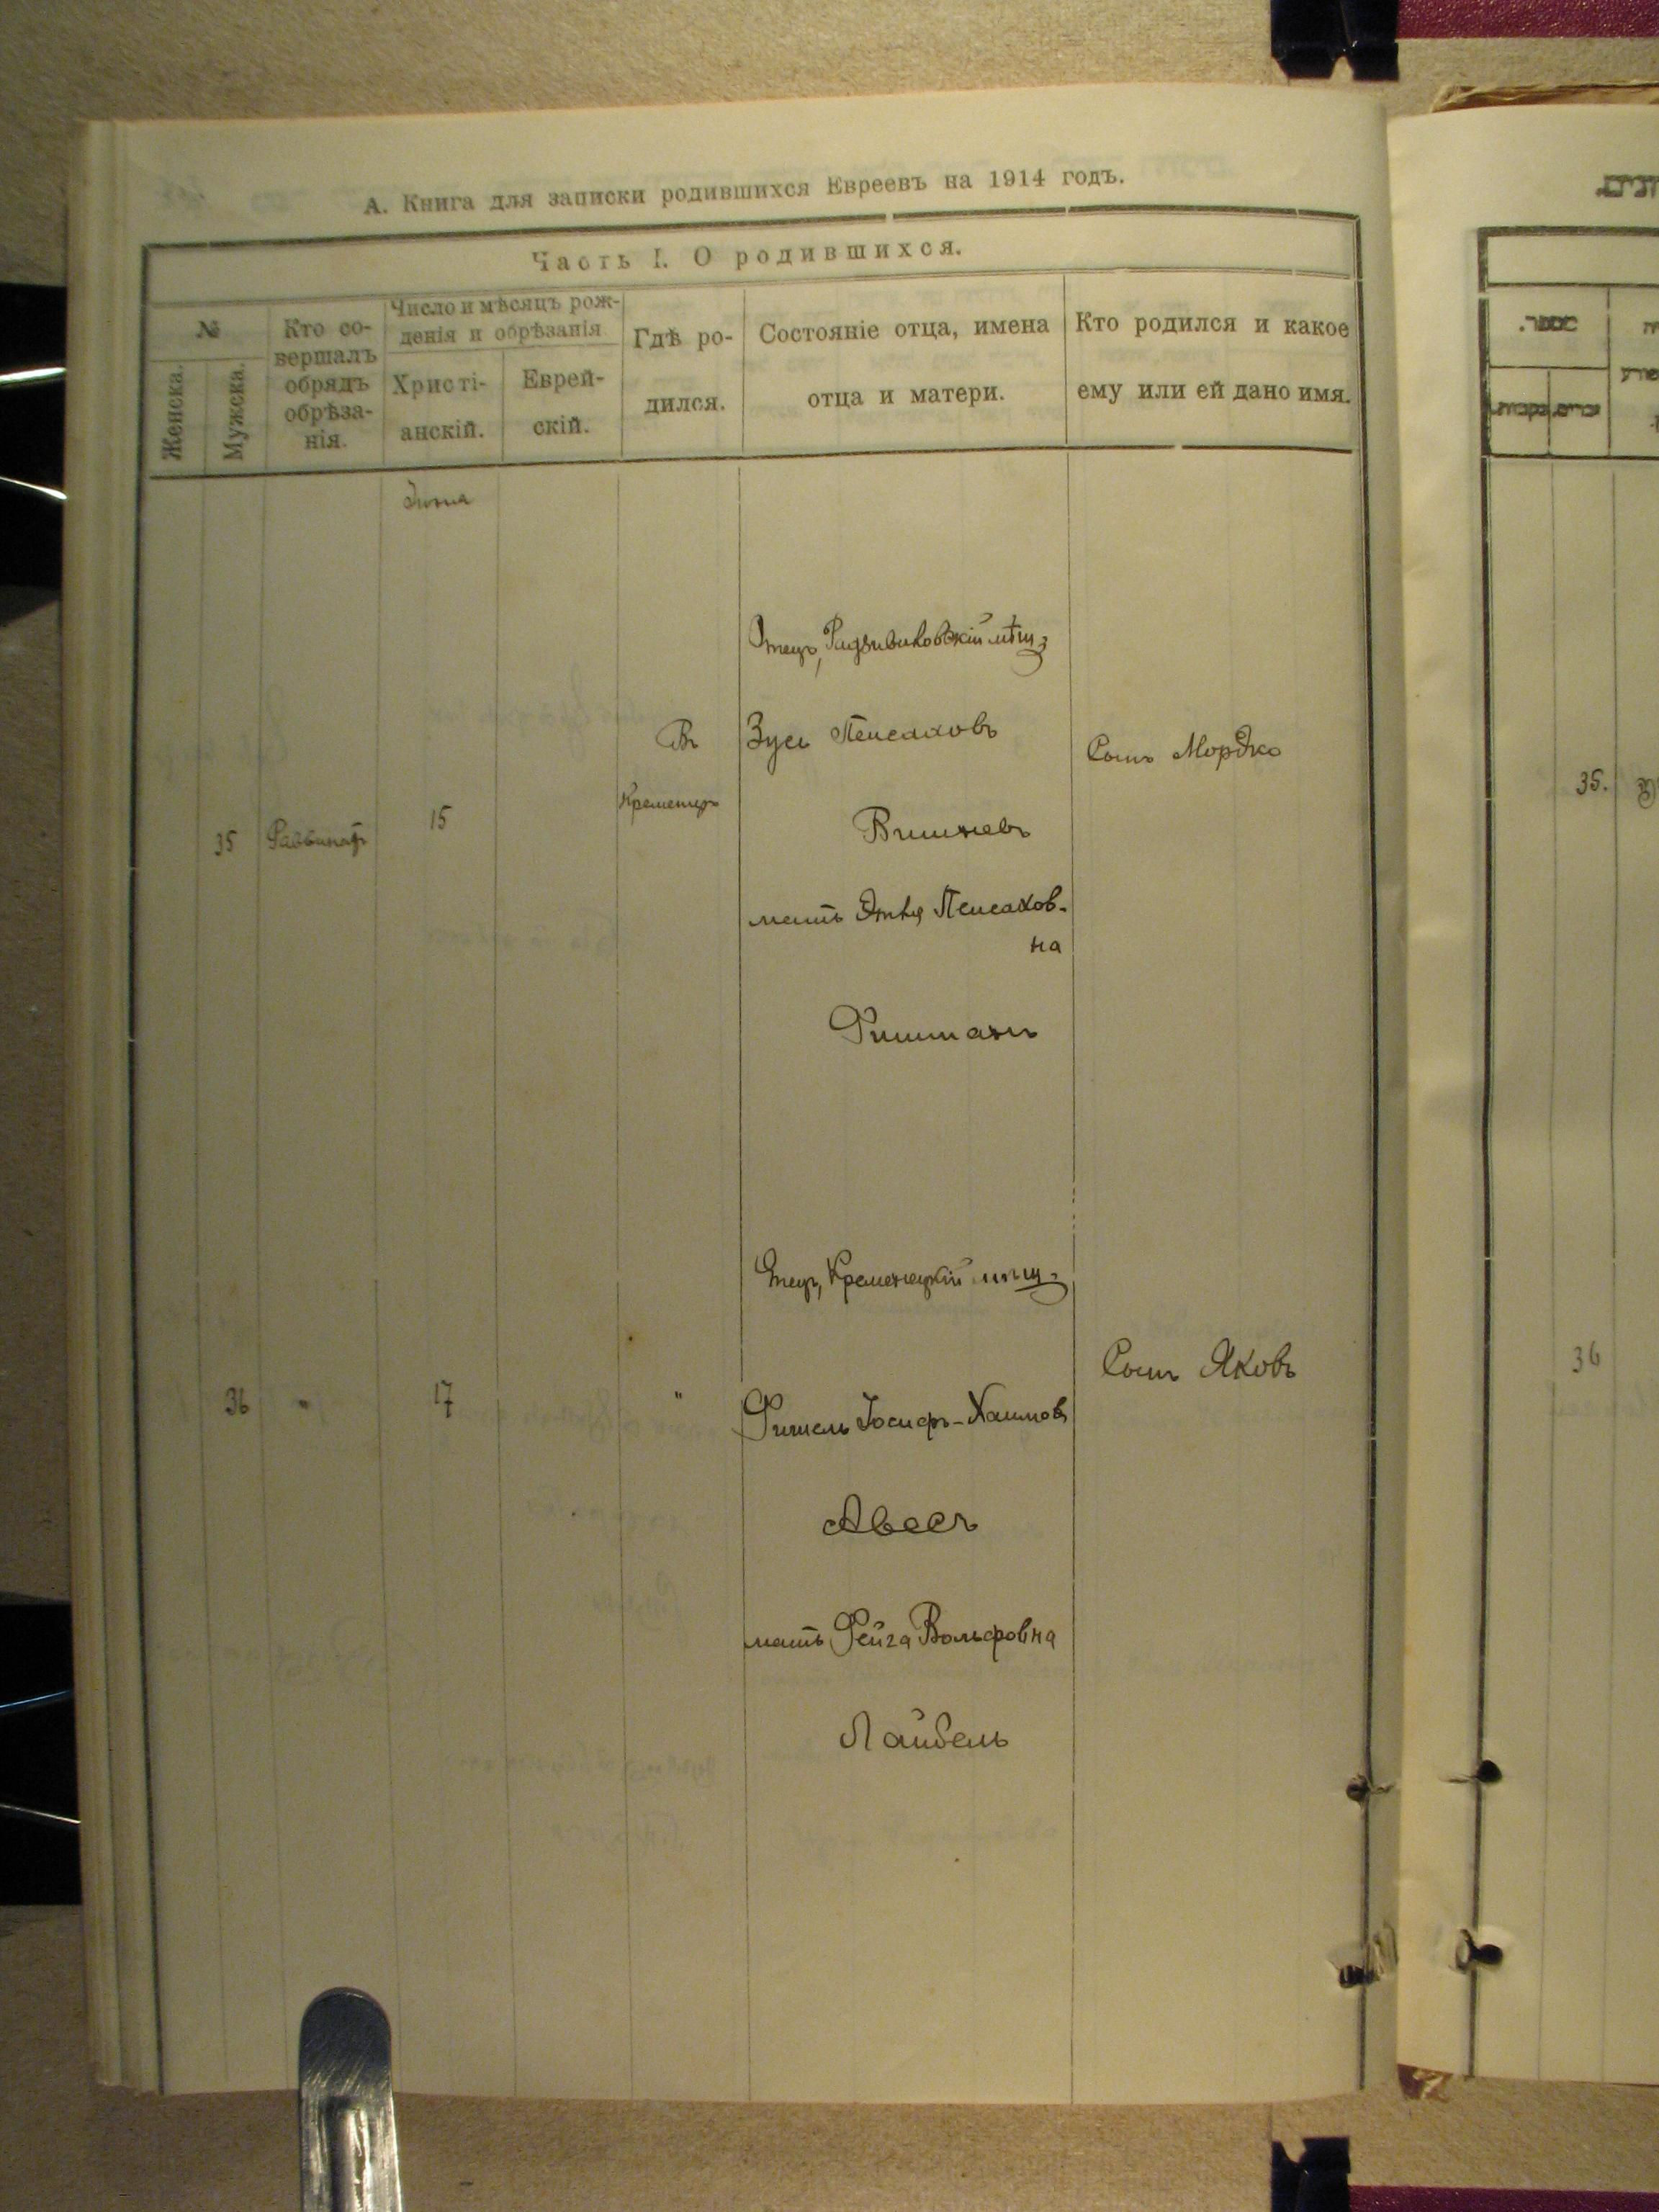 А. Книга для записки родившихся Евреевъ на 1914 годъ.
Часть I. О родившихся.
№
Женска.
Мужска.
Кто со-
вершалъ
обрядъ
обрѣза-
нія.
Число и мѣсяцъ рож-
денія и обрѣзанія
Христі-
анскій.
Еврей-
скій.
Гдѣ ро-
дился.
Состояніе отца, имена
отца и матери.
Кто родился и какое
ему или ей дано имя.
Отецъ, Радзивиловскій мѣщ.
35
Раввинатъ
15
Въ
Кременцѣ
Зусь Пейсаховъ
Вишневъ
мать Этя Пейсахов-
на
Фишманъ
Сынъ Мордко
Отецъ, Кременецкій мѣщ.
36
"
17
"
Фишель Іосифъ-Хаимовъ
Авесъ
мать Фейга Вольфовна
Лайбель
Сынъ Яковъ
35.
36